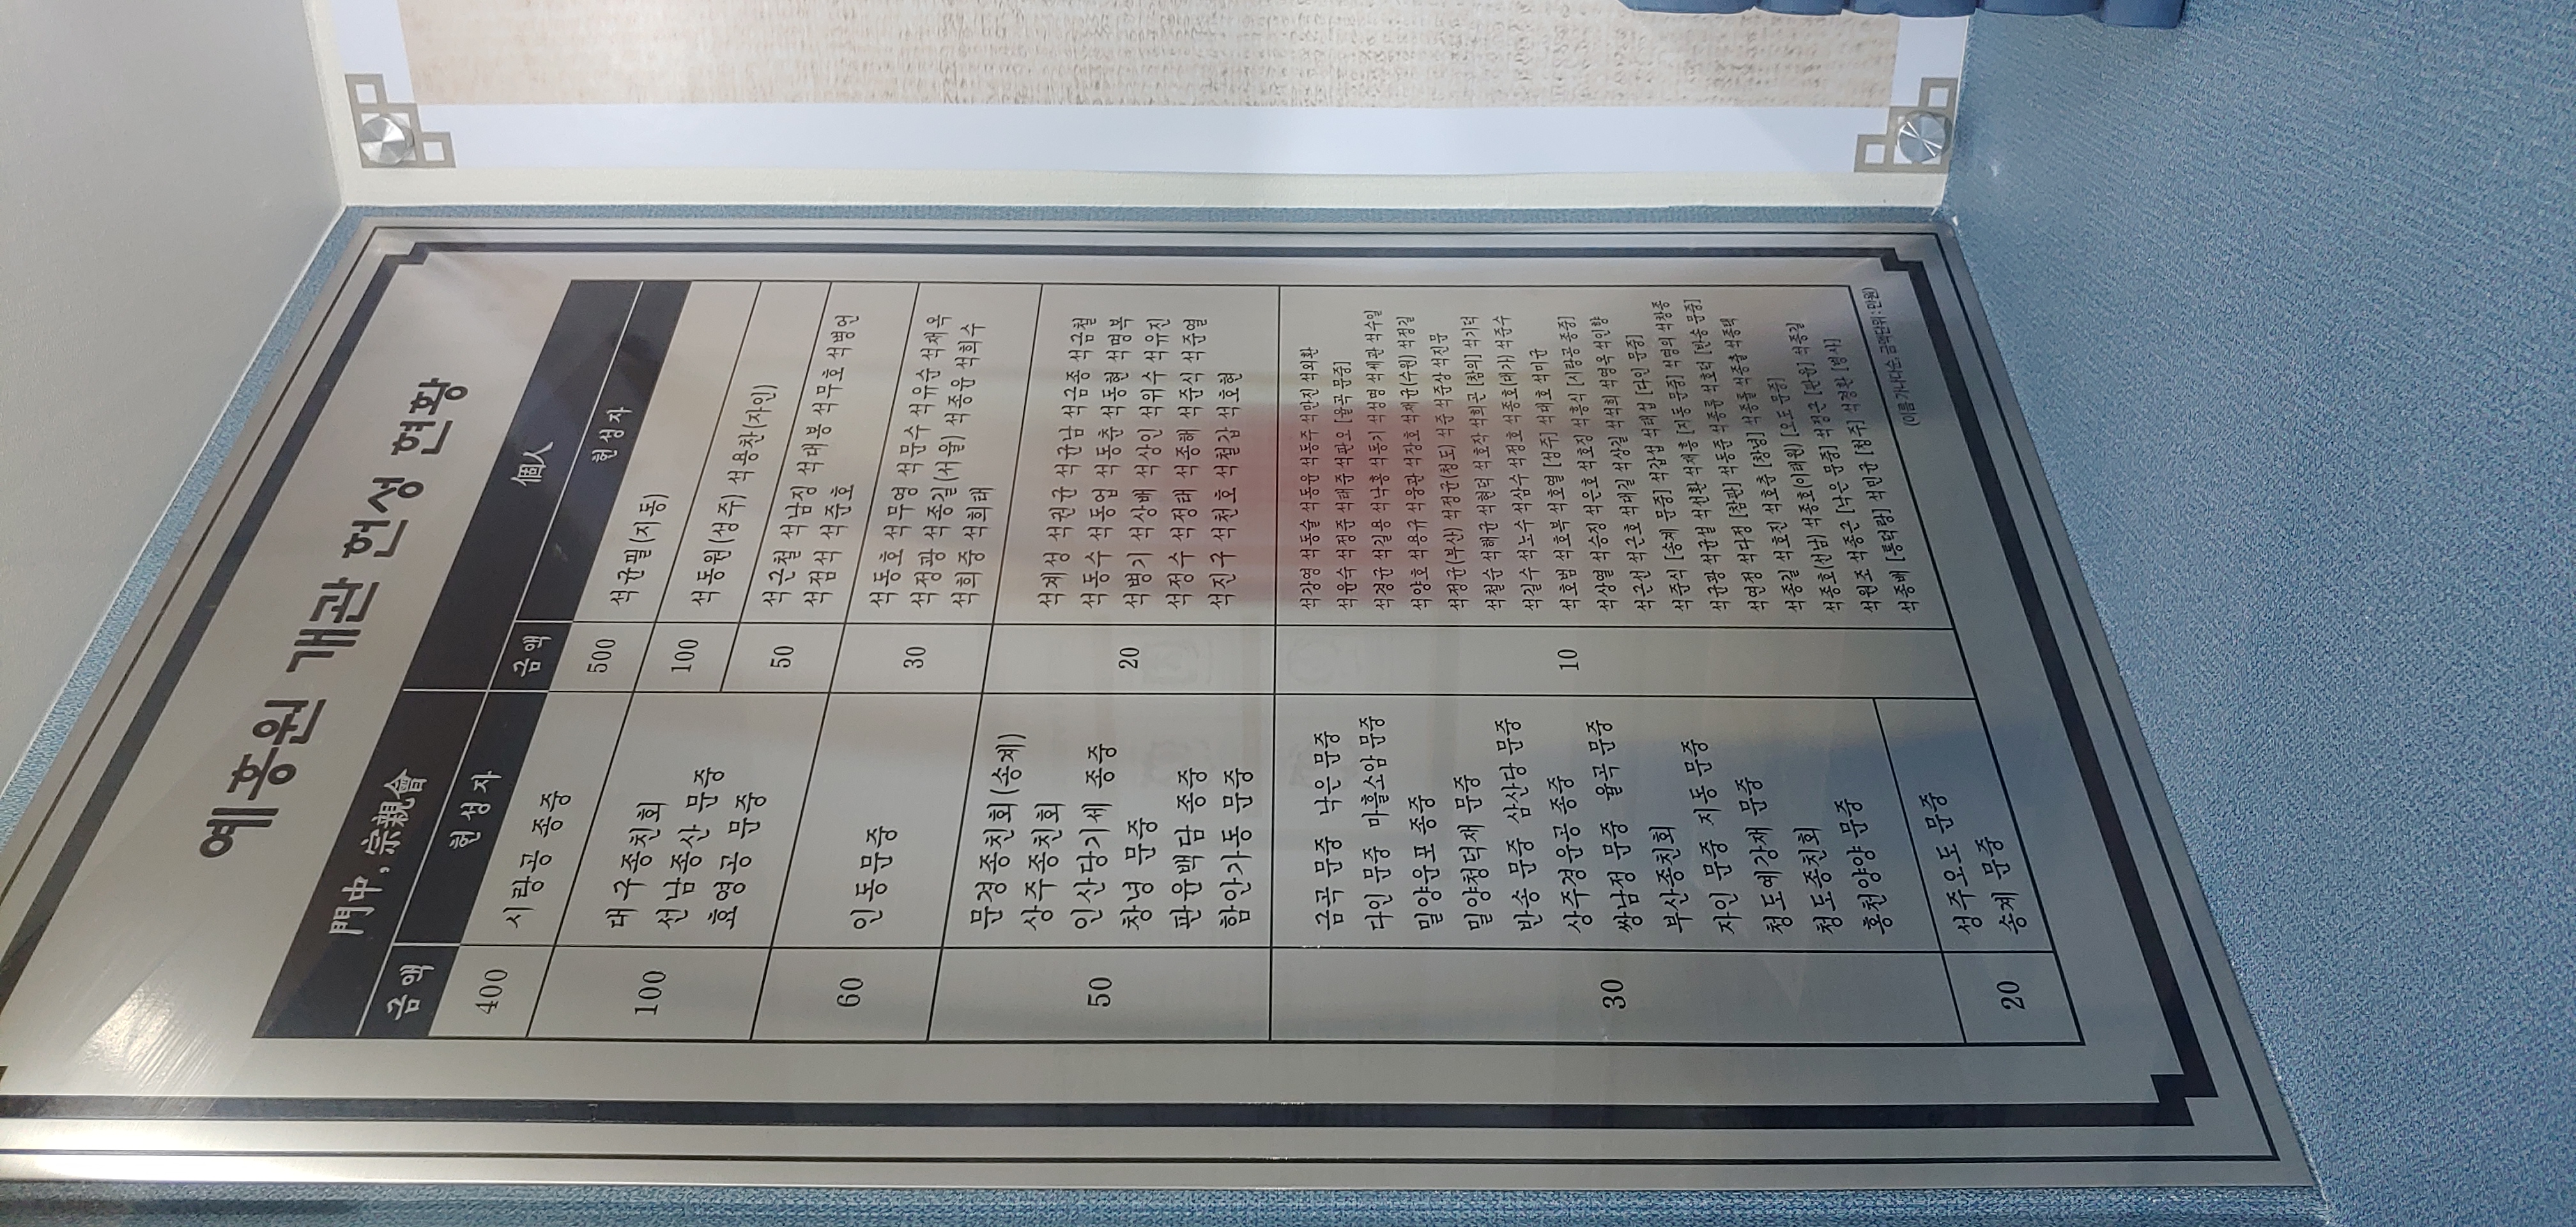 예홍원 개관 헌성 현황
門中, 宗親會
금액 헌성자
400 시랑공 종중
100 대구종친회
선남종산 문중
효영공 문중
60 인동문중
50 문경종친회(송계)
상주종친회
인산당기세 종중
창녕 문중
판윤백담 종중
함안가동 문중
30 금곡 문중 낙은 문중
다인 문중 마흘소암 문중
밀양운포 종중
밀양청덕재 문중
반송 문중 삼산당 문중
상주경운공 종중
쌍남정 문중 율곡 문중
부산종친회
자인 문중 지동 문중
청도예강재 문중
청도종친회
홍천양양 문중
20 성주오도 문중
송계 문중
個人
금액 헌성자
500 석균필(지동)
100 석동원(성주) 석용찬(자인)
50 석근철 석남징 석대봉 석무호 석병언
석점석 석준호
30 석동호 석무영 석문수 석유순 석재옥
석정광 석종길(서울) 석종윤 석희수
석희중 석희태
20 석계성 석권균 석균남 석금종 석금철
석동수 석동업 석동춘 석동현 석명복
석병기 석상배 석상인 석위수 석유진
석정수 석정태 석종해 석준식 석준열
석진구 석천호 석철갑 석호현
10 석강영 석동술 석동윤 석동주 석만진 석외환
석윤숙 석정준 석태준 석판오 [율곡 문중]
석경균 석길용 석낙홍 석동기 석성명 석세관 석수일
석양호 석용규 석웅관 석장호 석재균(수원) 석정길
석정균(부산) 석정균(청도) 석준 석준상 석진문
석철순 석해균 석현덕 석호작 석희곤 [참의] 석기덕
석길수 석노수 석삼수 석정호 석종호(대가) 석준수
석호범 석호복 석호열 [성주] 석대호 석미균
석상열 석승징 석은호 석호징 석홍식 [시랑공 종중]
석근선 석근호 석대길 석상길 석석희 석영옥 석인향
석준식 [송계 문중] 석갑섭 석태섭 [다인 문중]
석균광 석균설 석천환 석채흥 [지동 문중] 석영의 석창종
석연정 석다정 [참판] 석동준 석종륜 석호덕 [반송 문중]
석종길 석호진 석호춘 [창녕] 석종돌 석종출 석종택
석종호(선남) 석종호(이태원) [오도 문중]
석원조 석종근 [낙은 문중] 석정근 [판윤] 석종길
석종배 [통덕랑] 석민균 [청주] 석경환 [병사]
(이름 가나다순, 금액단위 : 만원)